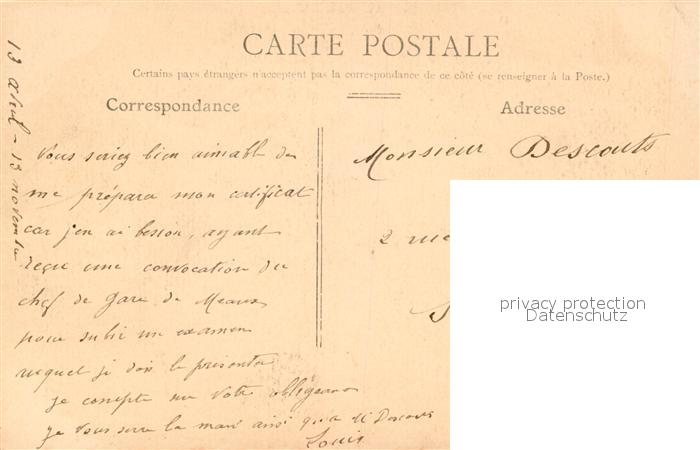 CARTE POSTALE
Certains pays étrangers n'acceptent pas la correspondance de ce côté (se renseigner à la Poste.)
Correspondance
Adresse
13 avril - 13 novembre
Vous seriez bien aimable de
me prépara mon certificat
car j'en ai besoin, ayant
reçu une convocation du
chef de gare de Meaux
pour subir un examen
auquel je dois le présenter
je compte sur votre obligeance
je vous serre la main ainsi qu'a
Louis
Monsieur Descouts
2 rue
privacy protection
Datenschutz